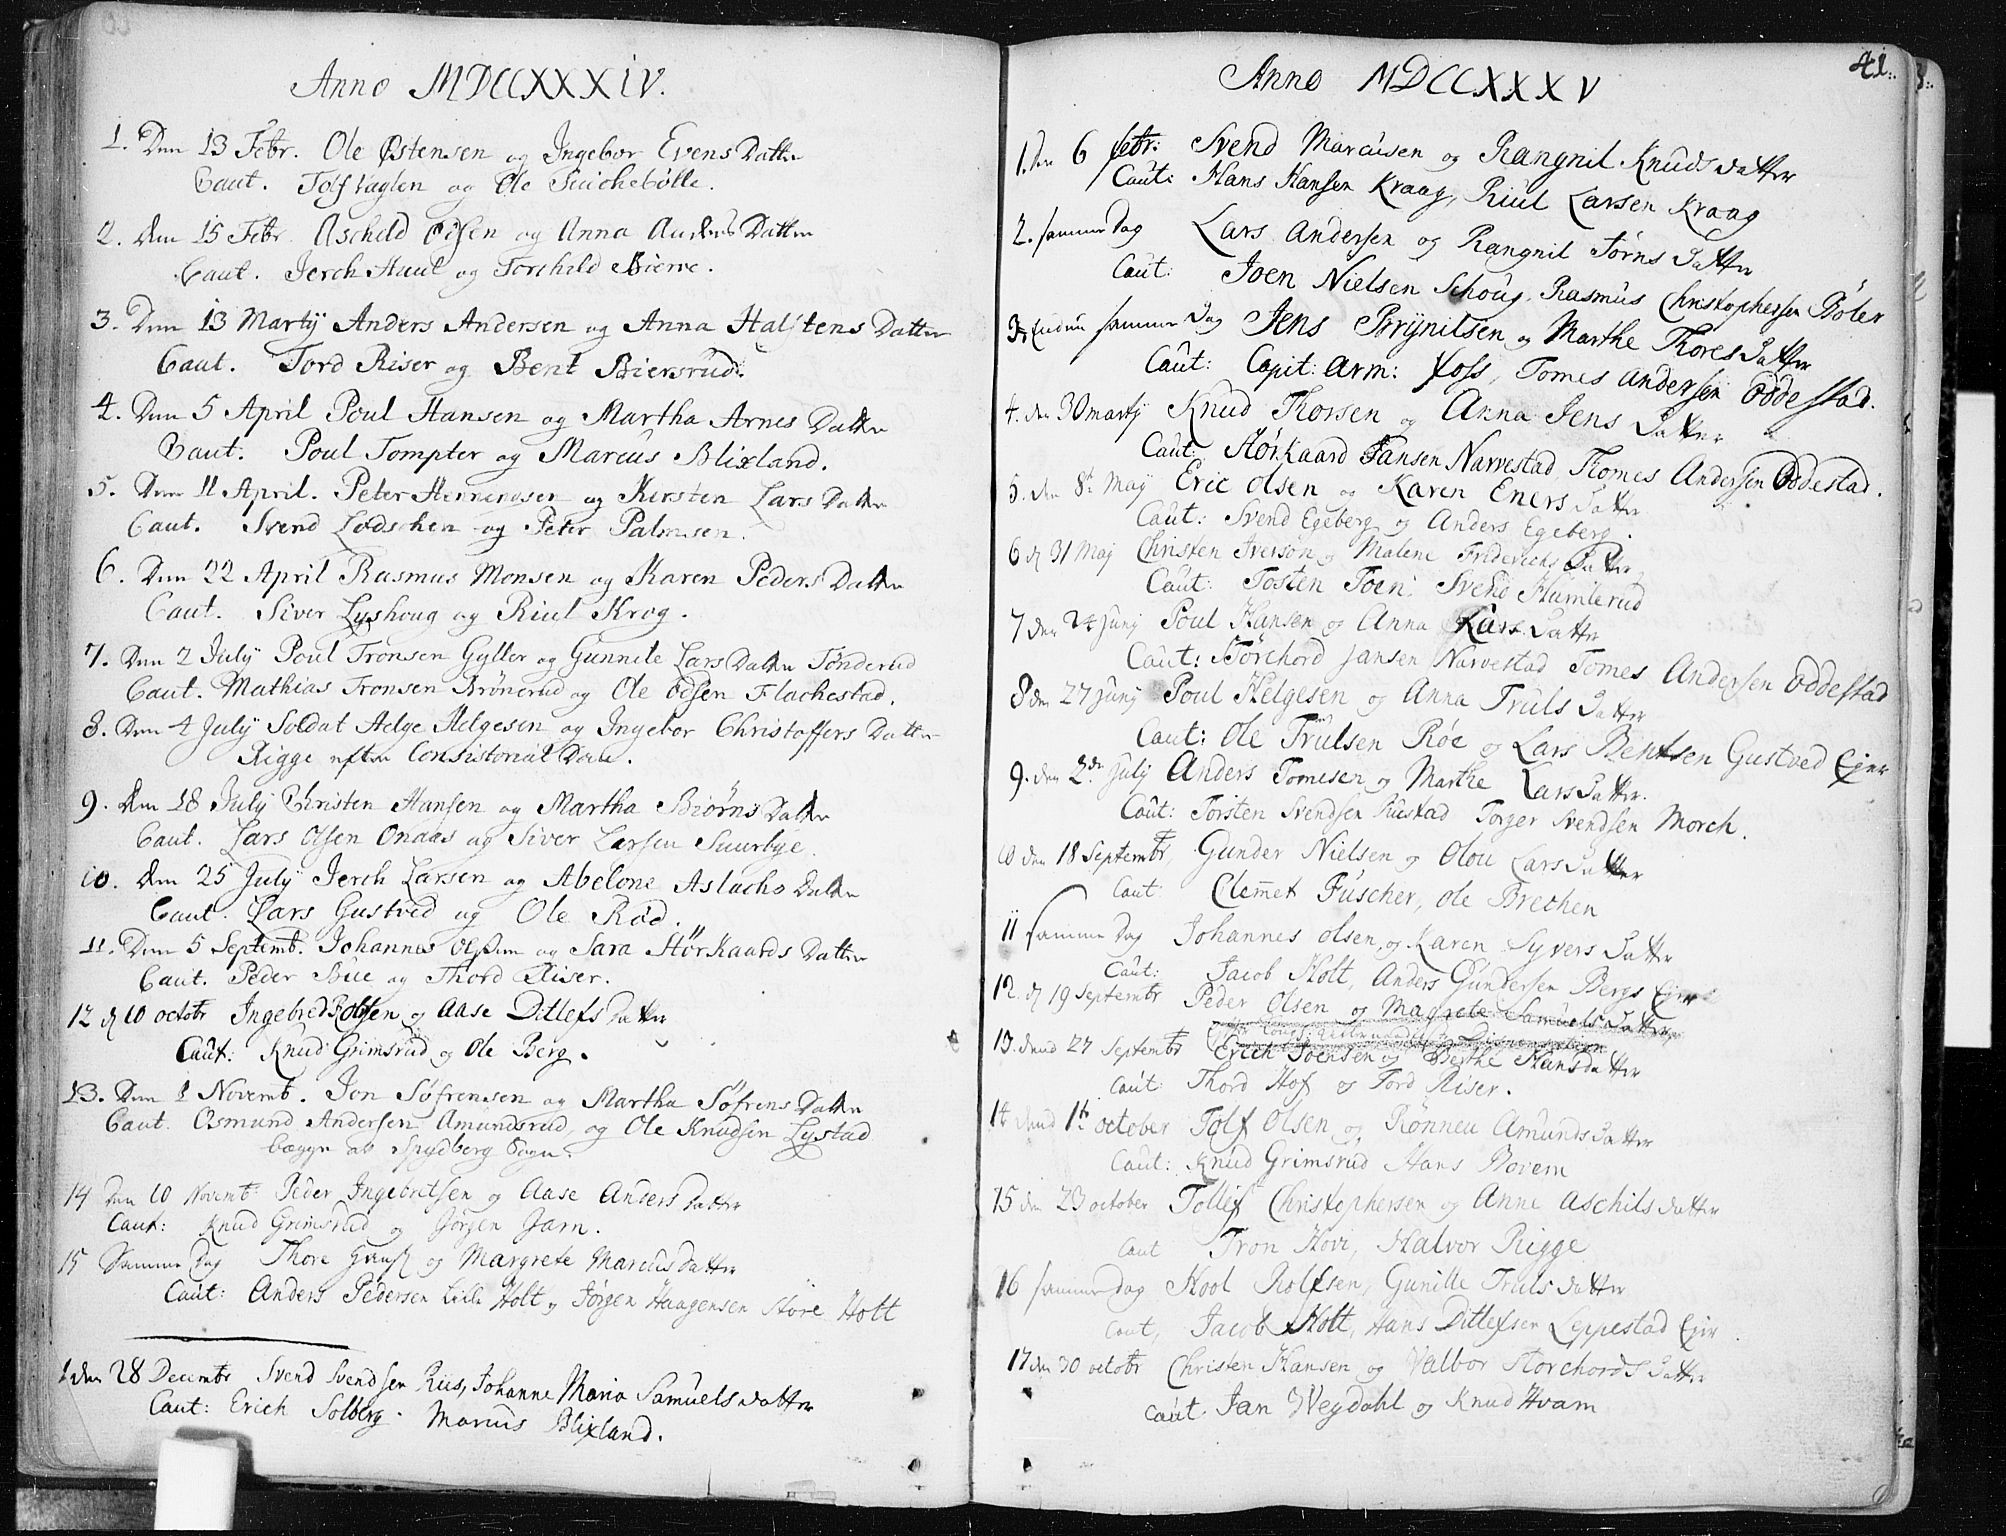 Anno MDCCXXXIV.
1. Den 13 Febr. Ole Østensen og Ingebor Evens Datter
Caut. Tolf Vaglen og Ole
2. Den 15 Febr. Aschild Odsen og Anna Anders Datter
Caut. Jerch Huut og Torchild Bierve.
3. Den 13 Martÿ Anders Andersen og Anna Halstens Datter
Caut. Tord Riser og Bent Biersrud.
4. Den 5 April Poul Hansen og Martha Arnes Datter
Caut. Poul Tompter og Marcus Blixland.
5. Den 11 April. Peter Henningsen og Kirsten Lars Datter
Caut. Svend Lodschen og Peter Palmsen.
6. Den 22 April Rasmus Monsen og Karen Peders Datter
Caut. Siver Lyshoug og Riul Krog.
7. Den 2 Julÿ Poul Tronsen Gyller og Gunnile Lars Datter Tønderud
Caut. Mathias Tronsen Brønerud og Ole Odsen Flachestad.
8. Den 4 Julÿ Soldat Helge Helgesen og Ingebor Christoffers Datter
Rigge efter Consistorial Dom.
9. Den 18 Julÿ Christen Hansen og Martha Biørns Datter
Caut. Lars Olsen Onaas og Siver Larsen Suurbye.
10. Den 25 Julÿ Jerch Larsen og Abelone Aslachs Datter
Caut. Lars Gustved og Ole Röd.
11. Den 5 Septemb. Johannes Olsen og Sara Størkaards Datter
Caut. Peder Bue og Thord Riser.
12 d 10 octobr Ingebred Robsen og Aase Ditlefs Datter
Caut: Knud Grimsrud og Ole Berg.
13. Den 1 Novemb. Jon Søfrensen og Martha Søfrens Datter
Caut. Osmund Andersen Amundsrud, og Ole Knudsen Lystad
begge af Spydberg Sogn.
14 Den 10 Novemb: Peder Ingebretsen og Aase Anders Datter
Caut: Knud Grimsrud og Jørgen Jarn.
15 Samme Dag Thore og Margrete Marcus Datter
Caut: Anders Pedersen Lille Holt og Jørgen Haagensen Store Holt
1 den 28 Decembr Svend Svendsen Riis, Johanne Maria Samuels Datter
Caut: Erich Solberg. Marcus Blixland.
Anno MDCCXXXV
41.
1. Den 6 febr: Svend Marcusen og Rangnil Knuds Datter
Caut: Hans Hansen Kraag, Riul Larsen Kraag
2. samme Dag Lars Andersen og Rangnil Törns Datter
Caut: Joen Nielsen Schoug, Rasmus Christophersen Böler
3. Endnu samme Dag Jens Brynilsen og Marthe Thores Datter
Caut: Capit: Arm: Foss, Tomes Andersen Oddestad.
4. den 30 martÿ Knud Thorsen og Anna Jens Datter
Caut: Störkaard Jansen Narvestad, Thomes Andersen Oddestad.
5. den 8t Maÿ Eric Olsen og Karen Eners Datter
Caut: Svend Egeberg og Anders Egeberg.
6 d 31 Maj Christen Iverson og Malene Friderichs Datter
Caut: Tosten Toen: Svend Humlerud
7 den 24 Junj Poul Hansen og Anna Lars Datter
Caut: Störchord Jansen Narvestad Tomes Andersen Oddestad
8 den 27 Junj Poul Helgesen og Anna Truls Datter
Caut: Ole Trulsen Röe og Lars Bentsen Gustved Ejer
9. den 2de Julÿ Anders Tomesen og Marthe Lars Datter.
Caut: Torsten Svendsen Torger Svendsen Morch.
10 den 18 Septembr, Gunder Nielsen og Olou Lars Datter
Caut: Clemet Fuscher, Ole Brechen
11 samme Dag Johannes Olsen, og Karen Syvers Datter
Caut: Jacob Holt, Anders Gundersen Bergs Ejer
12. d 19 Septembr Peder Olsen og Magrete Samuels Datter
13. dend 27 Septembr Erich Joensen og Berthe Hans Datter
Caut: Thord Hof og Tord Riser.
14 dend 1t october Tolf Olsen og Rönneu Amunds Datter
Caut: Knud Grimsrud Hans Bovem
15 den 23 october Tollef Christophersen og Anne Aschils Datter
Caut Tron Hovi, Halvor Rigge
16 samme Dag Hool Rolfsen, Gunille Truls Datter
Caut, Jacob Holt, Hans Ditlefsen Leppestad Ejer
17 den 30 octobr Christen Hansen og Valbor Storchords Datter
Caut. Jan Weydahl og Knud Hvam